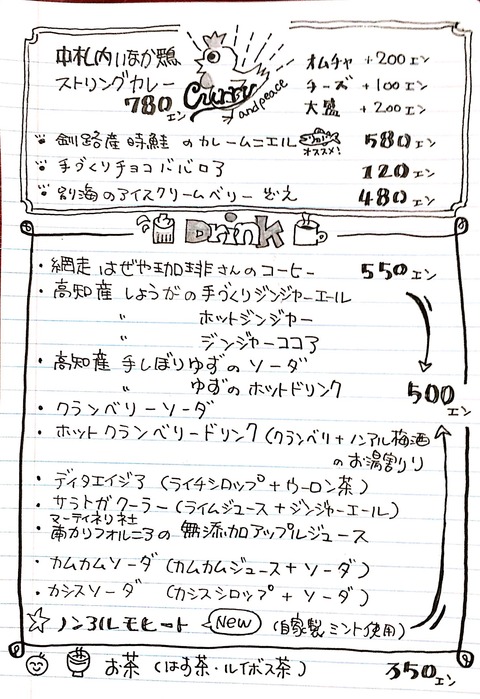 中札内いなか鶏
ストリングカレー
780エン
Curry and peace
オムチャ +200エン
チーズ +100エン
大盛 +200エン
釧路産時鮭のカレームニエル オススメ! 580エン
手づくりチョコババロア 120エン
別海のアイスクリームベリーぞえ 480エン
Drink
・網走はぜや珈琲さんのコーヒー 550エン
・高知産しょうがの手づくりジンジャーエール
〃 ホットジンジャー
〃 ジンジャーココア
・高知産手しぼりゆずのソーダ
〃 ゆずのホットドリンク
500エン
・クランベリーソーダ
・ホットクランベリードリンク(クランベリ+ノンアル梅酒
のお湯割り)
・ディタエイジア(ライチシロップ+ウーロン茶)
・サラトガクーラー(ライムジュース+ジンジャーエール)
マーティネリ社
・南カリフォルニアの無添加アップルジュース
・カムカムソーダ(カムカムジュース+ソーダ)
・カシスソーダ(カシスシロップ+ソーダ)
☆ノンアルモヒート New (自家製ミント使用)
お茶(はす茶・ルイボス茶) 350エン